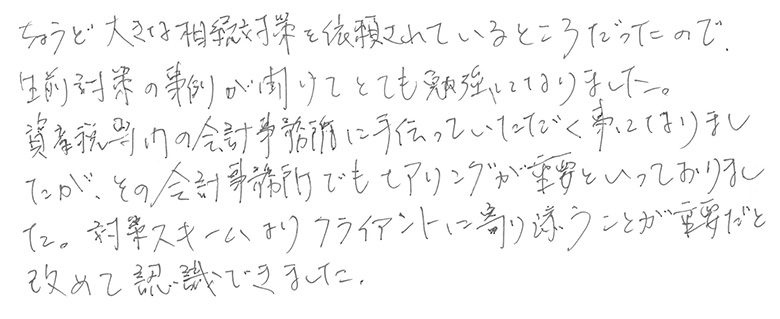 ちょうど大きな相続対策を依頼されているところだったので、
生前対策の事例が聞けてとても勉強になりました。
資産税専門の会計事務所に手伝っていただく事になりまし
たが、その会計事務所でもヒアリングが重要といっておりまし
た。対策スキームよりクライアントに寄り添うことが重要だと
改めて認識できました。